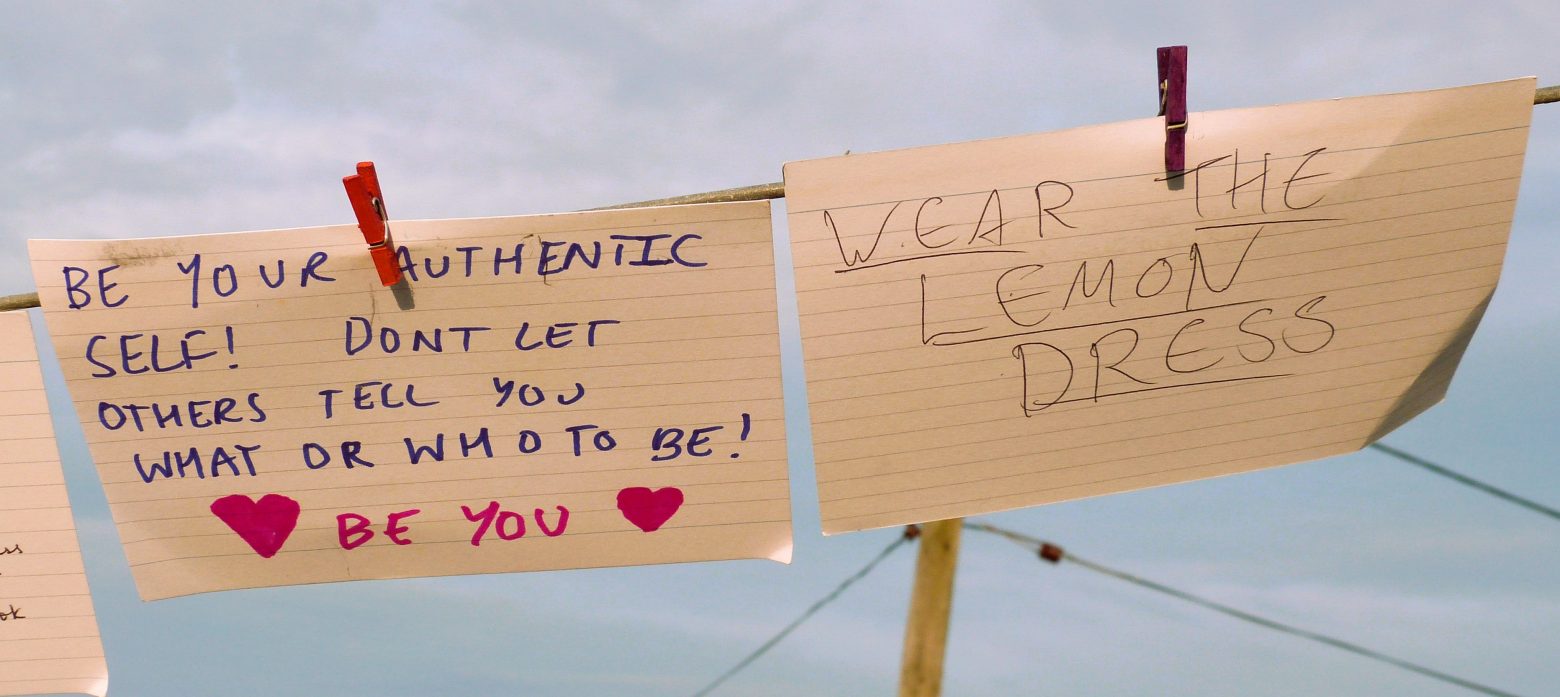 BE YOUR AUTHENTIC
SELF! DONT LET
OTHERS TELL YOU
WHAT OR WHO TO BE!
BE YOU
WEAR THE
LEMON
DRESS